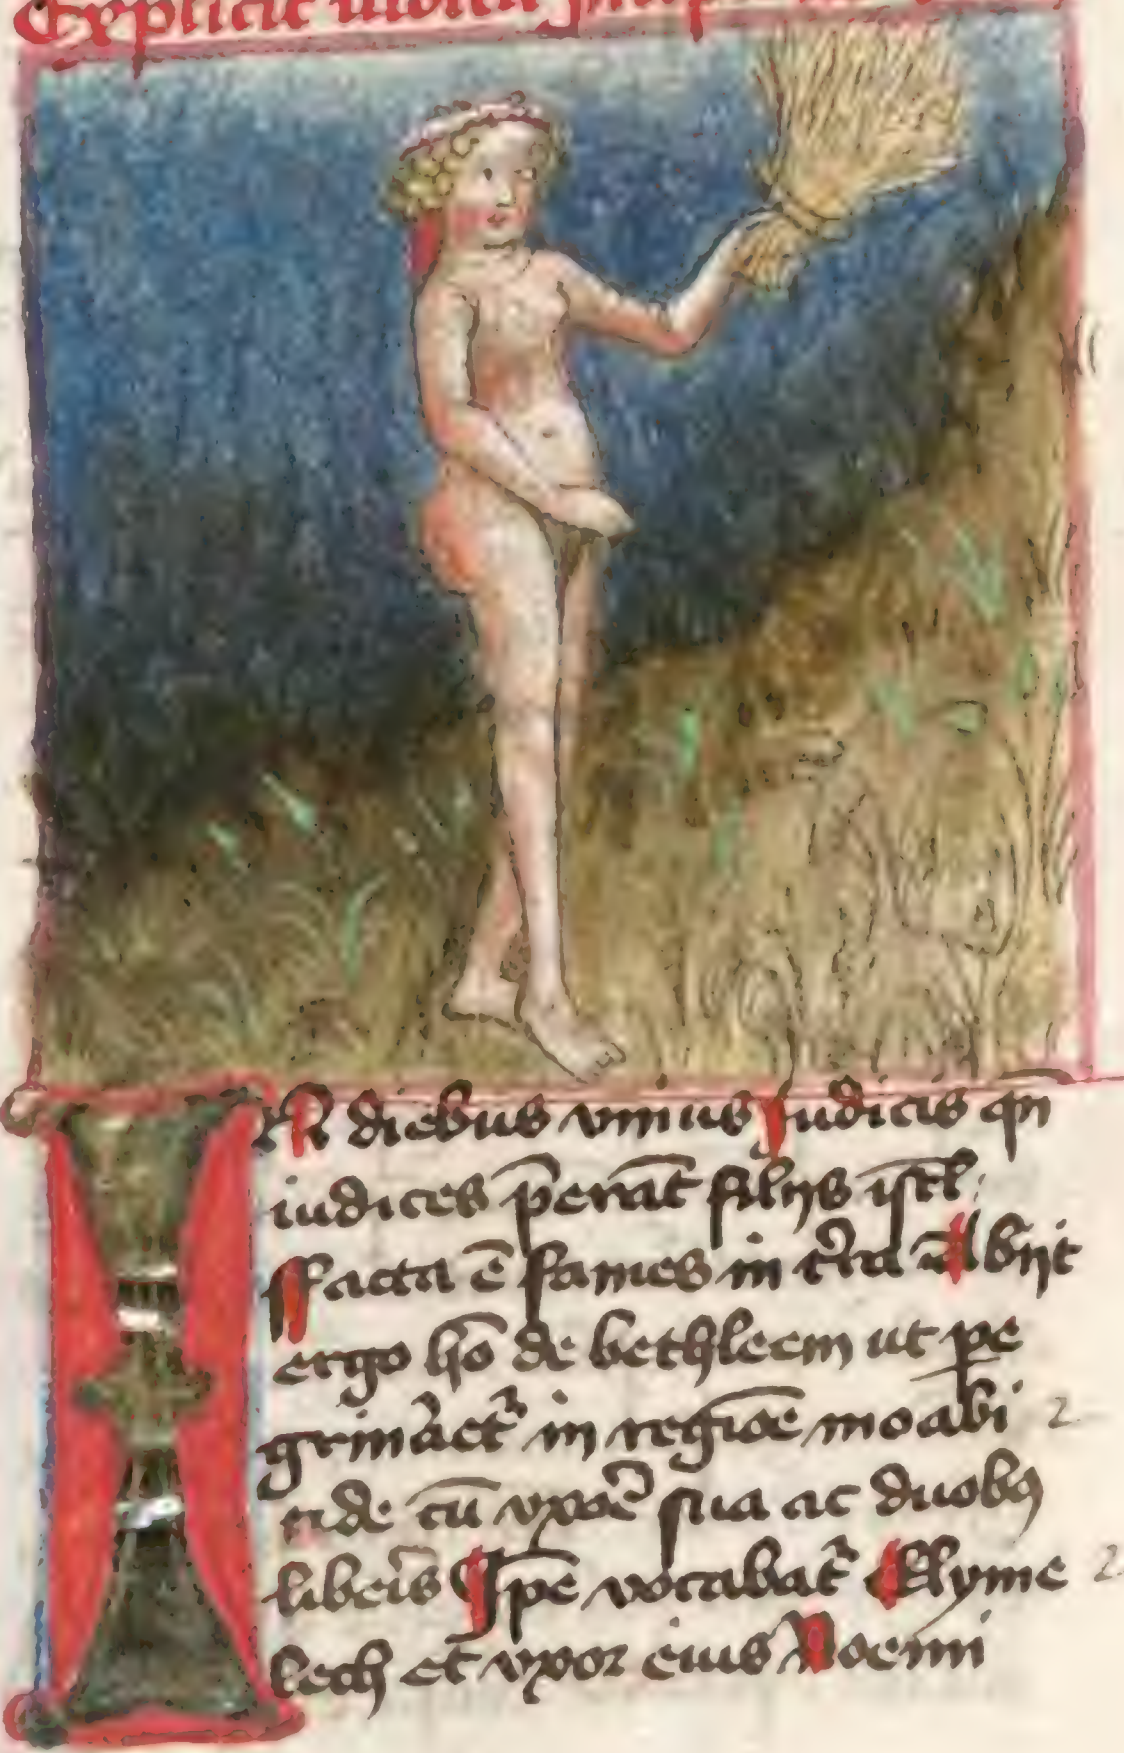 Explicit iudicu Incip
In diebus vnius Judicis qn̄
iudices p̄erāt filijs isrl̄
ffacta ē fames in t̄ra Abijt
ergo hō de bethleem ut pe
grinaret᷑ in regiōe moabi
tide cū vxore sua ac duobꝫ
liberis Ipe vocabat᷑ Elyme
lech et vxor eius Noemi